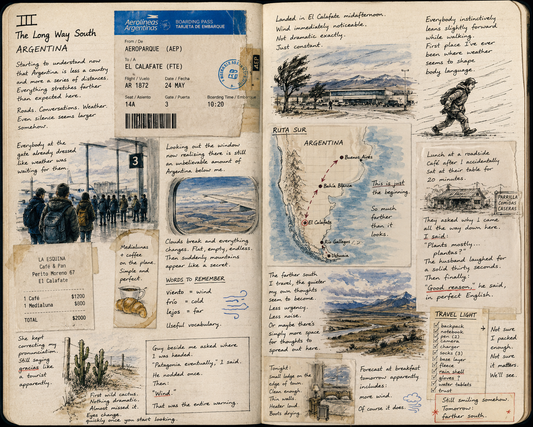 III
The Long Way South
ARGENTINA
Starting to understand now
that Argentina is less a country
and more a series of distances.
Everything stretches farther
than expected here.
Roads. Conversations. Weather.
Even silence seems larger
somehow.
Aerolíneas
Argentinas
BOARDING PASS
TARJETA DE EMBARQUE
From / De
AEROPARQUE (AEP)
To / A
EL CALAFATE (FTE)
Flight / Vuelo
Date / Fecha
AR 1872
24 MAY
Seat / Asiento
Gate / Puerta
Boarding Time /
14A
3
10:20
AEP
Everybody at the
gate already dressed
like weather was
waiting for them.
3
Looking out the window
now realising there is still
an unbelievable amount of
Argentina below me.
Clouds break and everything
changes. Flat, empty, endless.
Then suddenly mountains
appear like a secret.
WORDS TO REMEMBER
Viento = wind
frío = cold
lejos = far
Useful vocabulary.
LA ESQUINA
Café & Pan
Perito Moreno 67
El Calafate
1 Café $1200
1 Medialuna $800
TOTAL $2000
Medialunas
+ coffee
on the plane.
Simple and
perfect.
She kept
correcting my
pronunciation.
Still saying
gracias like
a tourist
apparently.
First wild cactus.
Nothing dramatic.
Almost missed it.
Eyes change
quickly once you start looking.
Guy beside me asked where
I was headed.
"Patagonia eventually," I said.
He nodded once.
Then:
"Wind."
That was the entire warning.
Landed in El Calafate midafternoon.
Wind immediately noticeable.
Not dramatic exactly.
Just constant.
RUTA SUR
ARGENTINA
Buenos Aires
Bahía Blanca
El Calafate
Río Gallegos
Ushuaia
This is just
the beginning.
So much
farther than
it looks.
The farther south
I travel, the quieter
my own thoughts
seem to become.
Less urgency.
Less noise.
Or maybe there's
simply more space
for thoughts to
spread out here.
Tonight:
Small lodge on the
edge of town.
Clean enough.
Thin walls.
Heater loud.
Boots drying.
Forecast at breakfast
tomorrow apparently
includes:
more wind.
Of course it does.
Everybody instinctively
leans slightly forward
while walking.
First place I've ever
been where weather
seems to shape
body language.
Lunch at a roadside
café after I accidentally
sat at their table for
20 minutes.
PARRILLA
COMIDAS
CASERAS
They asked why I came
all the way down here.
I said:
"Plants mostly...
plantas?"
The husband laughed for
a solid thirty seconds.
Then finally:
"Good reason," he said,
in perfect English.
TRAVEL LIGHT
backpack
notebook
pen (2)
camera
charger
socks (3)
base layer
fleece
rain shell
gloves?
water tablets
trust
Not sure
I packed
enough.
Not sure
it matters.
We'll see.
Still smiling somehow.
Tomorrow:
farther south.